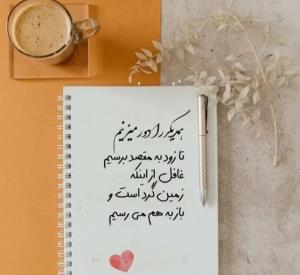 همدیگر را دور میزنیم
تا زود به مقصد برسیم
غافل از اینکه
زمین گرد است و
باز به هم می رسیم